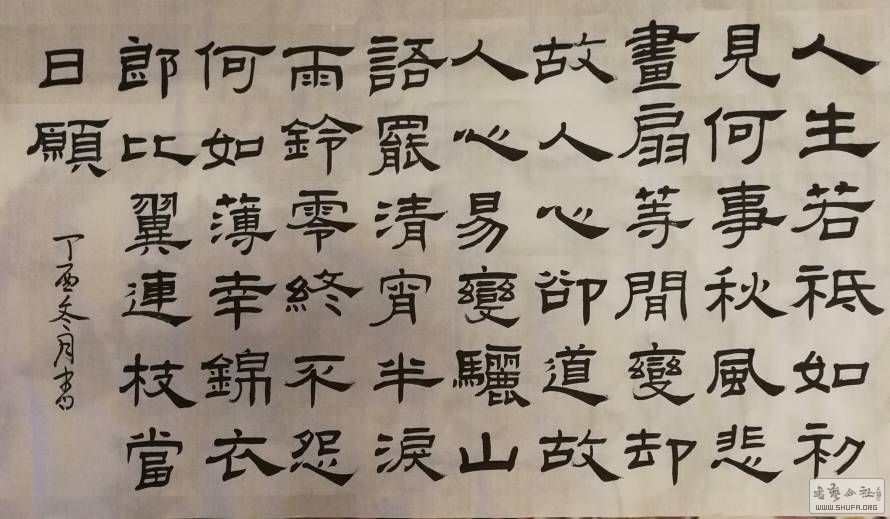 人生若祗如初
見何事秋風悲
畫扇等間變却
故人心卻道故
人心易變驪山
語罷清宵半淚
雨鈴零終不怨
何如薄幸錦衣
郎比翼連枝當
日願
丁酉冬月書
书艺公社
WWW.SHUFA.ORG